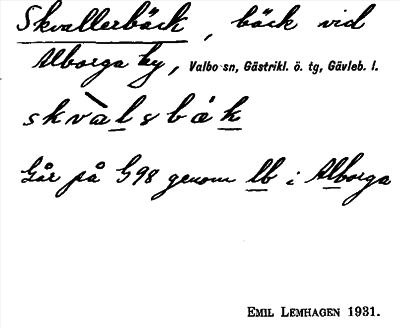 Skvallerbäck, bäck vid
Alborga by, Valbo sn, Gästrikl. ö. tg, Gävleb. l.
skvàlsbák
Går på G98 genom lb i Alborga
EMIL LEMHAGEN 1931.